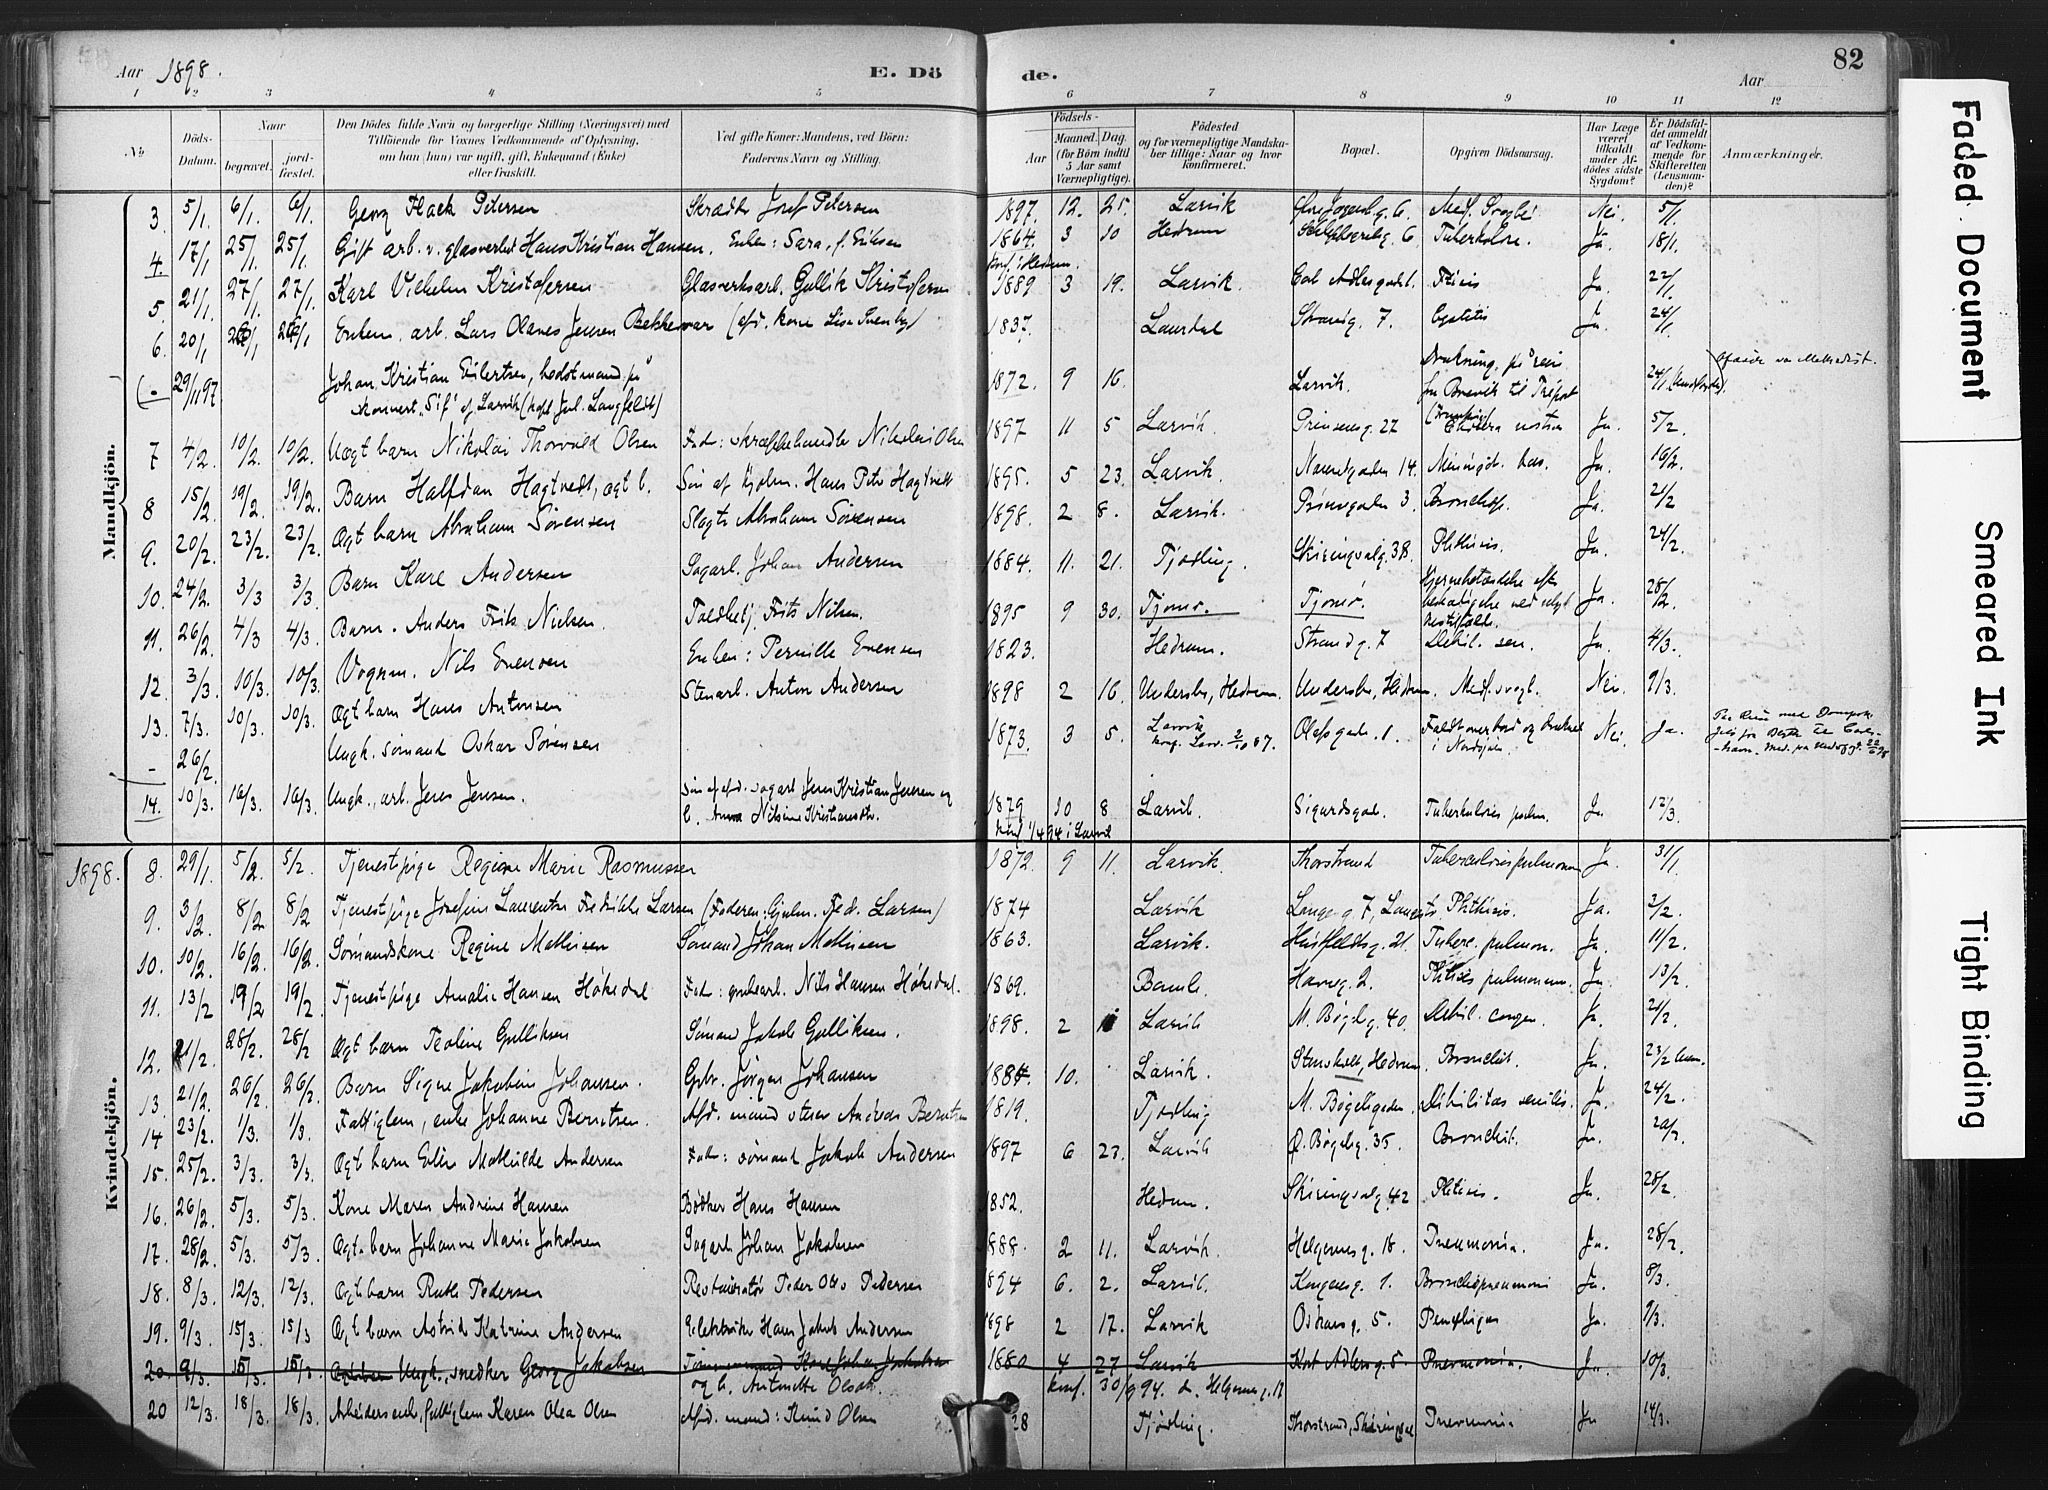 Aar 1898.
E. Dö
de.
Aar
82
1 2 3 4 5 6 7 8 9 10 11 12
No
Döds-Datum.
Naar
begravet.
jord-fæstet.
Den Dödes fulde Navn og borgerlige Stilling (Næringsvei) med
Tilföiende for Voxnes Vedkommende af Oplysning,
om han (hun) var ugift, gift, Enkemand (Enke)
eller fraskilt.
Ved gifte Koner: Mandens, ved Börn:
Faderens Navn og Stilling.
Födsels-
Aar
Maaned. Dag.
(for Börn indtil
5 Aar samt
Værnepligtige).
Födested
og for værnepligtige Mandska-
ber tillige: Naar og hvor
konfirmeret.
Bopæl.
Opgiven Dödsaarsag.
Har Læge
været
tilkaldt
under Af-
dödes sidste
Sygdom?
Er Dödsfal-
det anmeldt
af Vedkom-
mende for
Skifteretten
(Lensman-
den)?
Anmærkninger.
Mandkjön.
3 5/1 6/1 6/1 Georg Flack Petersen Skrædder Josef Petersen 1897. 12. 25. Larvik Med. Svagh. Nei. 5/1
4. 17/1 25/1 25/1 Gift arb. v. glasverket Hans Kristian Hansen. Enke: Sara, f. Eriksen 1864. 3 10 Hedrum Tuberkulose. Ja. 18/1
konf. i Hedrum.
5. 21/1 27/1 27/1 Karl Vilhelm Kristofersen Glasverksarb. Gullik Kristofersen 1889 3 19. Larvik. Ja. 22/1
6. 20/1 Enkem. arb. Lars Olaves Jensen Bekkevar (afd. kone Lisa Svenby) 1837. Laurdal Strandg. 7. Cystitis Ja 24/1
29/11 97 Johan Kristian Eilertsen, 1872. 9 16. Larvik. Drukning, på reise 24/1
"Sif" af Larvik (kapt. Jul. Langfeldt) fra Brevik til Tréport
7 4/2. 10/2. 10/2. Uægt barn Nikolai Thorvald Olsen Fader: skræppehandler Nikolai Olsen 1897 11 5 Larvik. Prinsensg. 27 Cholera nostras Ja 5/2
8 15/2. 19/2. 19/2. Barn Halfdan Hagtvedt, ægt b. Søn af Hans Peter Hagtvedt 1895. 5 23. Larvik. 14. Ja. 16/2.
9. 20/2. 23/2. 23/2. Ægt barn Abraham Sørensen Slagter Abraham Sørensen 1898. 2 8. Larvik. 3. Ja. 21/2
10. 24/2. 3/3 3/3. Barn Karl Andersen Sagarb. Johan Andersen 1884. 11. 21. Tjødling. Skiringsalg. 38. Phthisis. Ja. 24/2.
11. 26/2. 4/3. 4/3. Barn. Anders Frits Nielsen. Toldbetj. Frits Nilsen. 1895 9 30. Tjømø. Tjømø. Hjernebetændelse efter Ja. 28/2.
12. 3/3. 10/3. 10/3. Vognm. Nils Evensen Enken: Pernille Evensen 1823. Hedrum. Strandg. 7 Debil. sen. Ja. 4/3.
13. 7/3. 10/3. 10/3. Ægt barn Hans Antonsen Stenarb. Anton Andersen 1898 2 16. Undersbo, Hedrum. Undersbo, Hedrum. Med. svagh. Nei. 9/3.
- 26/2. Ungk. sømand Oskar Sørensen 1873. 3 5. Larvik Olafsgade. 1. Faldt overbord og druknet Nei. Ja.
konf. Larv. 2/10 87. i Nordsjøen.
14. 10/3. 16/3. 16/3. Ungk., arb. Jens Jensen. Søn af afd. sagarb. Jens Kristian Jensen og 1879 10 8 Larvik. Sigurdsgade. Tuberkulosis pulm. Ja. 12/3.
h. Anna Nilsine Kristiansdtr. konf 1/4 94 i Larvik
Kvindekjön.
1898. 8. 29/1. 5/2. 5/2. Tjenestpige Regine Marie Rasmussen 1872. 9 11. Larvik. Thorstrand Tuberculosis pulmonum Ja. 31/1.
9. 3/2 8/2 8/2 Tjenestpige Josefine Laurentse Fredrikke Larsen (Faderen: Gjulm. Fred. Larsen) 1874 Larvik Langeg. 7, Phthisis. Ja. 3/2.
10. 10/2. 16/2. 16/2. Sømandskone Regine Mathisen Sømand Johan Mathisen 1863. Larvik. Huitfeldtsg. 21. Tuberc. pulmon. Ja. 11/2.
11. 13/2 19/2 19/2 Tjenestpige Amalie Hansen Høkedal Fader: grubearb. Nils Hansen Høkedal. 1869. Bamle. Havneg. 2. Phtisis pulmonum. Ja. 13/2.
12. 21/2. 28/2. 28/2 Ægt barn Teoline Gulliksen Sømand Jakob Gulliksen. 1898. 2 Larvik M. Bøgelg. 40. Debil. congen. Ja. 21/2.
13. 21/2. 26/2. 26/2. Barn Signe Jakobine Johansen. Gbr. Jørgen Johansen 1884. 10. Larvik. Stensholt, Hedrum. Bronchit. Ja. 23/2
14 23/2. 1/3. 1/3. Fattiglem, enke Johanne Berntsen. Afd. mand Berntsen 1819. Tjødling M. Bøgelgaden. Debilitas senilis. Ja. 24/2.
15. 25/2 3/3. 3/3. Ægt barn Mathilde Andersen Fader: sømand Jakob Andersen 1897 6 23. Larvik Ø. Bøgelg. 35. Bronchit. Ja.
16. 26/2. 5/3. 5/3. Kone Maren Andrine Hansen Bødker Hans Hansen 1852. Hedrum. Skiringsalg. 42 Phtisis. Ja. 28/2.
17. 28/2. 5/3. 5/3. Ægt. barn Johanne Marie Jakobsen Sagarb. Johan Jakobsen 1888. 2 11. Larvik. Helgensg. 18. Pneumonia. Ja. 28/2.
18. 8/3. 12/3. 12/3. Ægt barn Ruth Pedersen Restauratør Peder Olav Pedersen 1894 6. 2. Larvik. Kongensg. 1. Bronchopneumoni Ja. 8/3.
19. 9/3. 15/3. 15/3 Ægt barn Astrid Katrine Andersen Elektriker Hans Jakob Andersen 1898 2 17. Larvik Oskarsg. 5. Pemphigus Ja. 9/3.
20. 9/3. 15/3. 15/3. Ungk., snedker Georg Jakobsen Tømmermand Karl Johan Jakobsen 1880 4 27 Larvik Kort Adlersg. 5. Pneumonia. Ja. 10/3.
og h. Antonette Olsdtr. konf. 30/9 94. d. Helgensg. 17
20 12/3. 18/3. 18/3. Arbeiderenke, fattiglem Karen Olea Olsen Afd. mand: Knud Olsen 28 Tjødling. Thorstrand, Skiringsal Pneumonia Ja 14/3.
Faded Document
Smeared Ink
Tight Binding